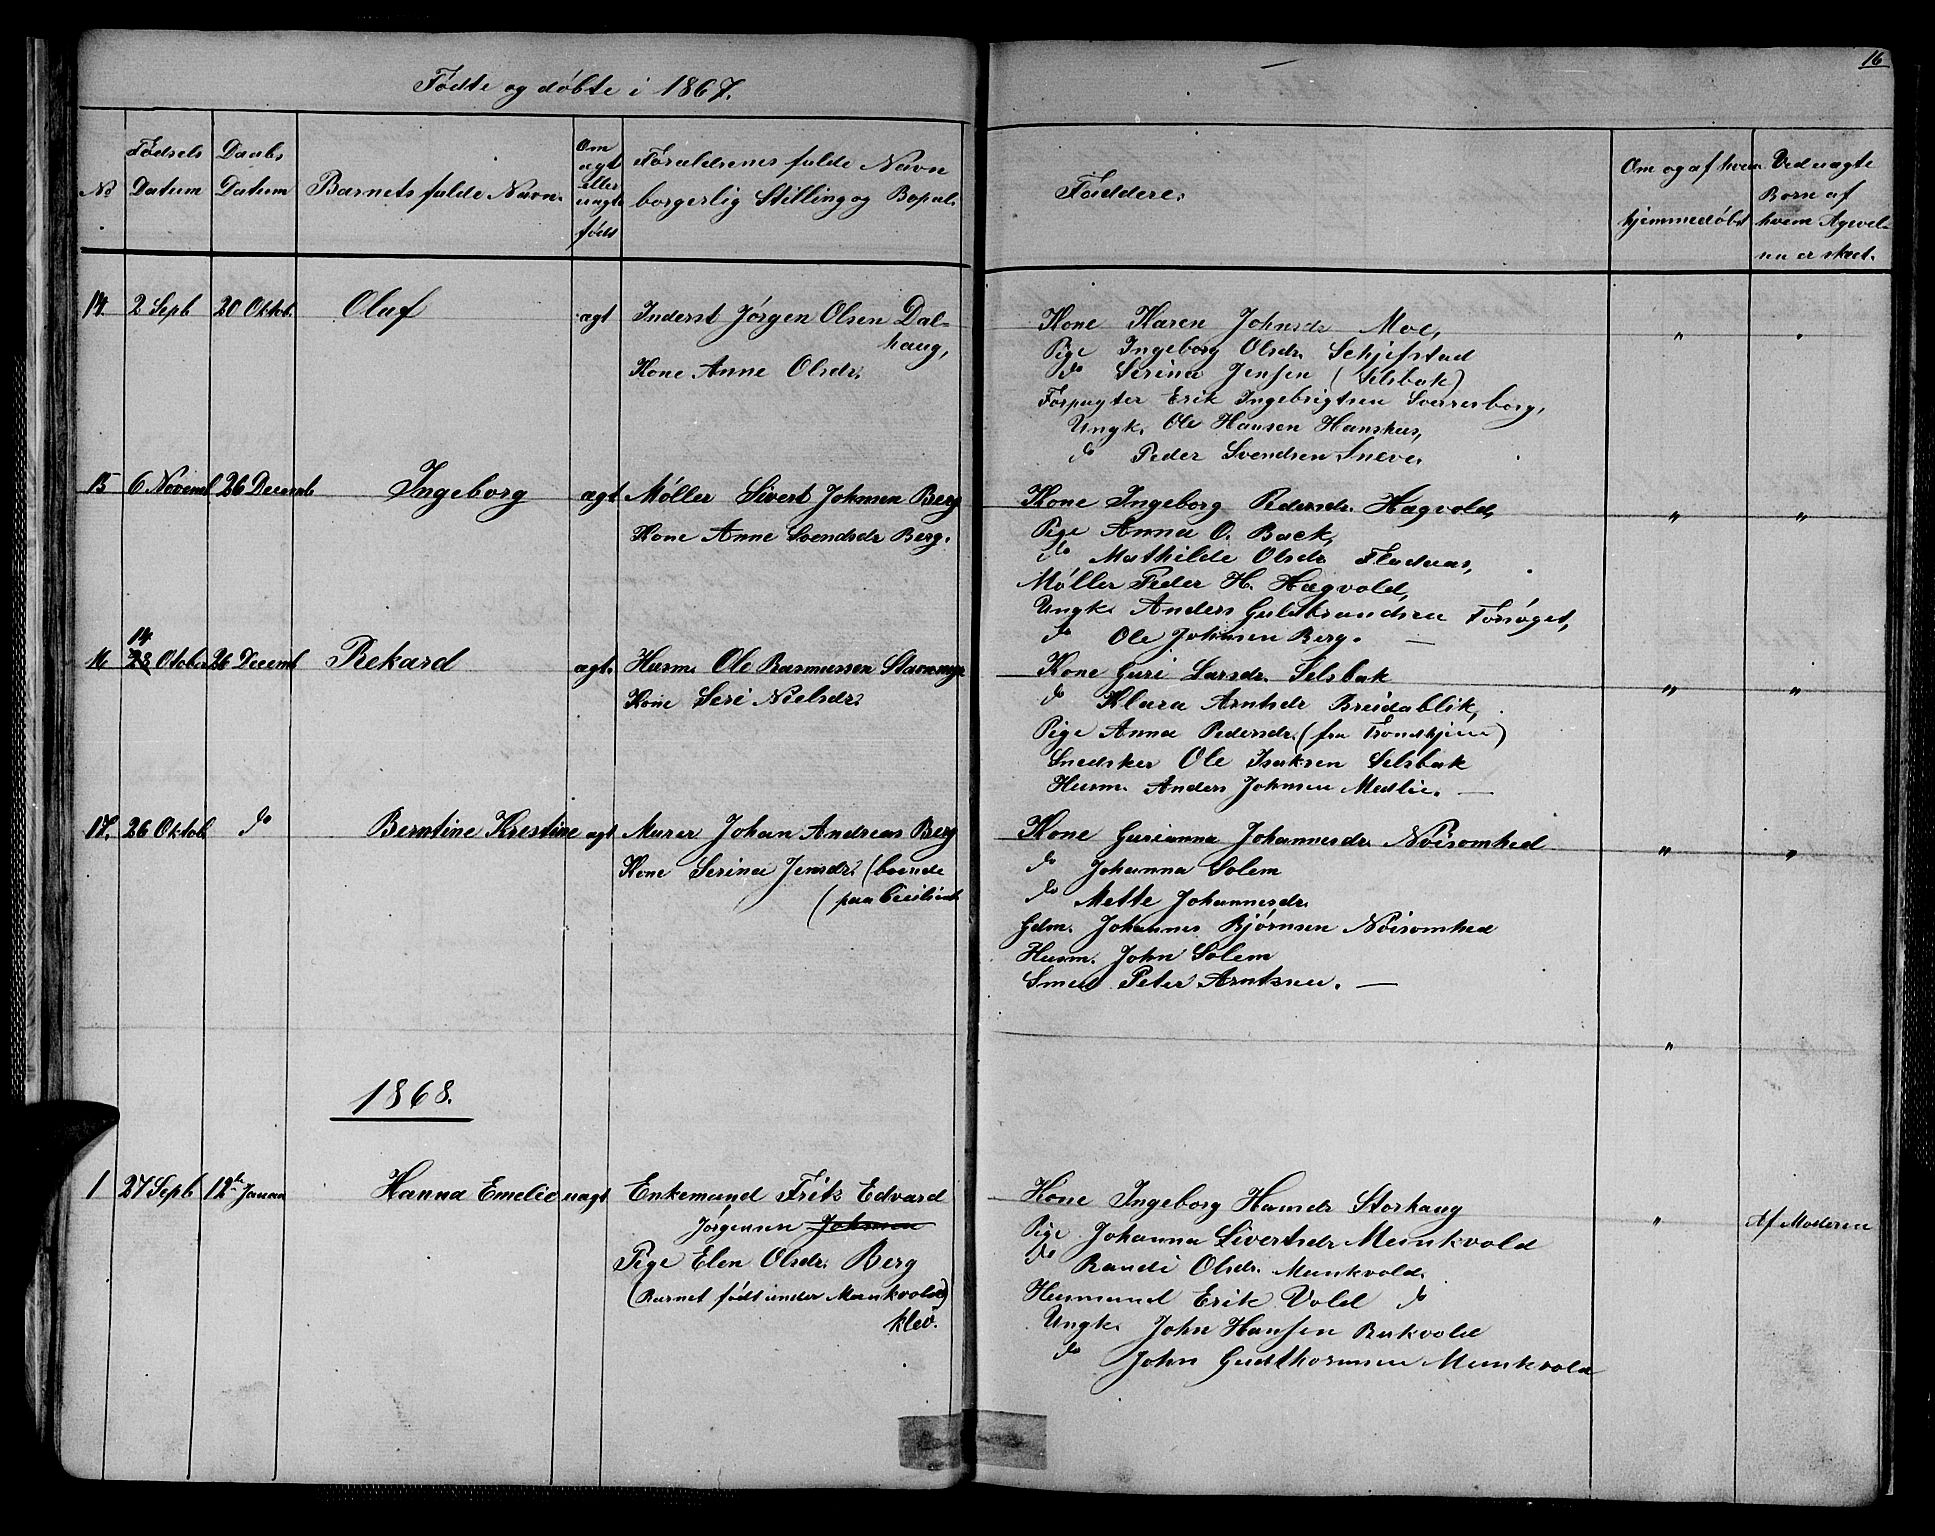 16
Fødte og døbte i 1867.
No
Fødsels Datum
Daabs Datum
Barnets fulde Navn.
Om ægt eller uægte født
Forældrenes fulde Navn borgerlig Stilling og Bopæl.
Faddere.
Om og af hvem hjemmedøbt
Ved uægte Børn af hvem Agivelnu er skeet.
14. 2 Sepb 20 Oktob. Olaf ægt Inderst Jørgen Olsen Dal-
haug,
Kone Anne Olsdr.
Kone Karen Johnsdr Moe, " "
Pige Ingeborg Olsdr. Schjefstad
do Serina Jensen (Selsbak)
Forpagter Erik Ingebrigtsen Sverresborg,
Ungk. Ole Hansen Hanshus,
do Peder Svendsen Sneve.
15 6 Novemb 26 Decemb Ingeborg ægt Møller Sivert Johnsen Berg
Kone Anne Svendsdr Berg.
Kone Ingeborg Pedersdr. Hægvold, " "
Pige Anna O. Back,
do Mathilde Olsdr Fladaas,
Møller Peder H. Hægvold,
Ungk. Anders Guldbrandsen Forsøget,
do Ole Johnsen Berg. —
14
16 28 Otober 26 Decemb Rekard ægt. Husm. Ole Rasmussen Stavnmyr
Kone Seri Nielsdr.
Kone Guri Larsdr. Selsbak " "
do Klara Arntsdr Breidablik,
Pige Anna Pedersdr. (fra Trondhjem)
Snedsker Ole Isaksen Selsbak
Husm. Anders Johnsen Medlie. —
17. 26 Oktob do Berntine Kristine ægt Murer Johan Andreas Berg
Kone Serina Jensdr. (boende
(paa Cecilienb
Kone Gurianna Johannesdr. Nøisomhed " "
do Johanna Solem
do Mette Johannesdr.
Gdm. Johannes Bjørnsen Nøisomhed
Husm. John Solem
Smed Peter Arntsen. —
"
1868.
1 27 Sepb 12te Januar Hanna Emelie uægt Enkemand Frits Edvard
Jørgensen Johnsen
Pige Elen Olsdr. Berg
(Barnet født under Munkvold)
klev.
Kone Ingeborg Hansdr Storhaug " Af Moderen
Pige Johanna Sivertsdr Munkvold
do Randi Olsdr. Munkvold.
Husmand Erik Vold do
Ungk. John Hansen Bukvold
do John Gudthormsen Munkvold